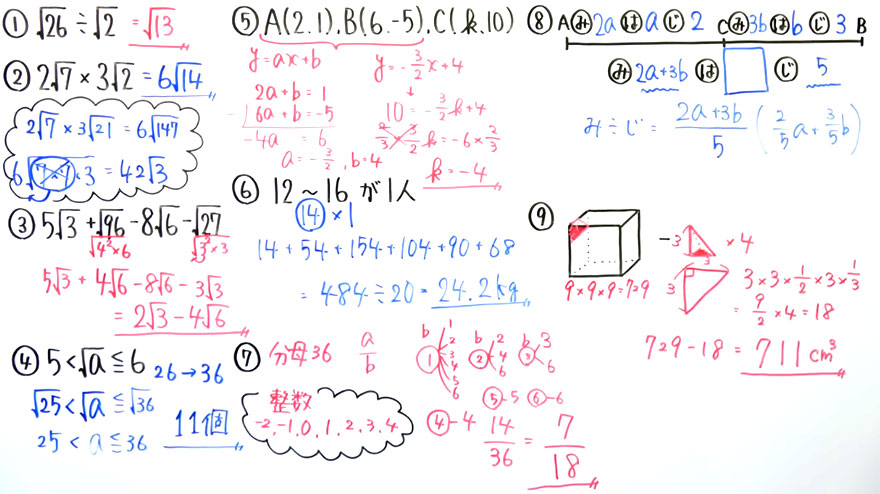 ① √26 ÷ √2 = √13
② 2√7 × 3√2 = 6√14
2√7 × 3√21 = 6√147
6√7·7·3 = 42√3
③ 5√3 + √96 - 8√6 - √27
√4²×6 √3²×3
5√3 + 4√6 - 8√6 - 3√3
= 2√3 - 4√6
④ 5 < √a ≦ 6 26→36
√25 < √a ≦ √36
25 < a ≦ 36 11個
⑤ A(2.1), B(6.-5), C(k.10)
y=ax+b
2a+b=1
-) 6a+b=-5
-4a = 6
a=-3/2, b=4
y=-3/2x+4
↓
10=-3/2k+4
2/3×3/2k=-6×2/3
k=-4
⑥ 12～16 が 1人
⑭×1
14+54+154+104+90+68
=484÷20=24.2kg
⑦ 分母36 a/b
整数
-2,-1,0,1,2,3,4
b
① 1 2 3 4 5 6
b
② 2 4 6
b
③ 3 6
④-4 ⑤-5 ⑥-6
14/36 = 7/18
⑧ A み 2a は a じ 2 C み 3b は b じ 3 B
み 2a+3b は じ 5
み÷じ= 2a+3b/5 (2/5a+3/5b)
⑨
9×9×9=729
- 3 3 ×4
3
3×3×1/2×3×1/3
=9/2×4=18
729-18=711cm³